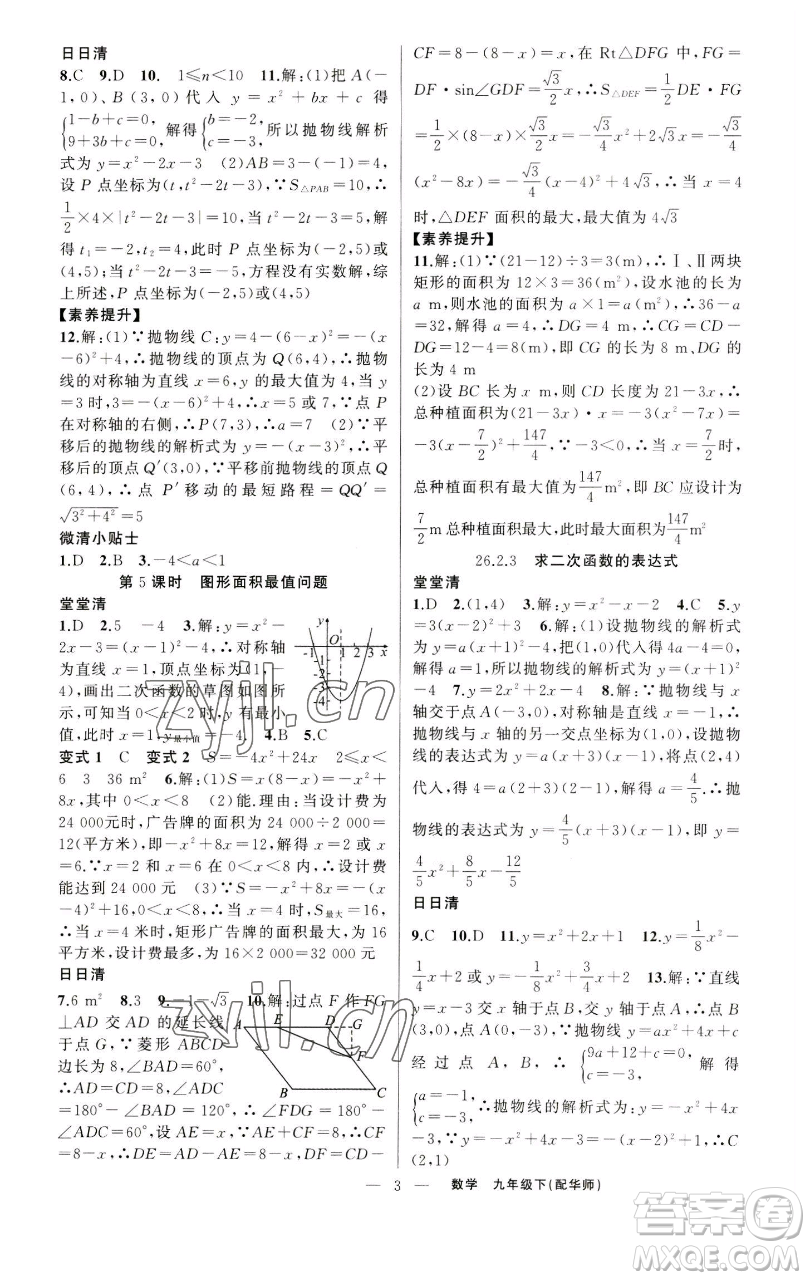 日日清
8.C 9.D 10. 1≤n<10 11.解:(1)把 A(-
1,0)、B(3,0)代入 y=x²+bx+c 得
{1-b+c=0, 9+3b+c=0, 解得{b=-2, c=-3, 所以抛物线解析
式为 y=x²-2x-3 (2)AB=3-(-1)=4,
设 P 点坐标为(t,t²-2t-3),∵S△PAB=10,∴
1/2×4×|t²-2t-3|=10,当 t²-2t-3=5,解
得 t₁=-2,t₂=4,此时 P 点坐标为(-2,5)或
(4,5);当 t²-2t-3=-5,方程没有实数解,综
上所述,P 点坐标为(-2,5)或(4,5)
【素养提升】
12.解:(1)∵抛物线 C:y=4-(6-x)²=-(x
-6)²+4,∴抛物线的顶点为 Q(6,4),∴抛物
线的对称轴为直线 x=6,y的最大值为 4,当
y=3 时,3=-(x-6)²+4,∴x=5 或 7,∵点 P
在对称轴的右侧,∴P(7,3),∴a=7 (2)∵平
移后的抛物线的解析式为 y=-(x-3)²,∴平
移后的顶点 Q′(3,0),∵平移前抛物线的顶点 Q
(6,4),∴点 P′移动的最短路程=QQ′=
√3²+4²=5
微清小贴士
1.D 2.B 3.-4<a<1
第 5 课时 图形面积最值问题
堂堂清
1.D 2.5 -4 3.解:∵y=x²-
2x-3=(x-1)²-4,∴对称轴
为直线 x=1,顶点坐标为(1,-
4),画出二次函数的草图如图所
示,可知当 0<x<2 时,y 有最小
值,此时 x=1,y最小值=-4. 4.B 5.C
y O -1 1 2 3 x -1 -2 -3 -4
变式 1 C 变式 2 S=-4x²+24x 2≤x<
6 3 36 m² 6.解:(1)S=x(8-x)=-x²+
8x,其中 0<x<8 (2)能.理由:当设计费为
24 000元时,广告牌的面积为 24 000÷2 000=
12(平方米),即-x²+8x=12,解得 x=2 或 x
=6.∵x=2 和 x=6 在 0<x<8 内,∴设计费
能达到 24 000 元 (3)∵S=-x²+8x=-(x
-4)²+16,0<x<8,∴当 x=4 时,S最大=16,
∴当 x=4 米时,矩形广告牌的面积最大,为 16
平方米,设计费最多,为 16×2 000=32 000 元
日日清
7.6 m² 8.3 9.-1-√3 10.解:过点 F 作 FG
⊥AD 交 AD 的延长线
于点 G,∵菱形 ABCD
边长为 8,∠BAD=60°,
∴AD=CD=8,∠ADC
=180°-∠BAD=120°,∴∠FDG=180°-
∠ADC=60°,设 AE=x,∵AE+CF=8,∴
A E D G F B C
CF=8-(8-x)=x,在 Rt△DFG 中,FG=
DF·sin∠GDF=√3/2x,∴S△DEF=1/2DE·FG
=1/2×(8-x)×√3/2x=-√3/4x²+2√3x=-√3/4
(x²-8x)=-√3/4(x-4)²+4√3,∴当 x=4
时,△DEF 面积的最大,最大值为 4√3
【素养提升】
11.解:(1)∵(21-12)÷3=3(m),∴Ⅰ、Ⅱ两块
矩形的面积为 12×3=36(m²),设水池的长为
a m,则水池的面积为 a×1=a(m²),∴36-a
=32,解得 a=4,∴DG=4(m),∴CG=CD-
DG=12-4=8(m),即 CG 的长为 8 m、DG 的
长为 4 m
(2)设 BC 长为 x m,则 CD 长度为 21-3x,∴
总种植面积为(21-3x)·x=-3(x²-7x)=
-3(x-7/2)²+147/4,∵-3<0,∴当 x=7/2时,
总种植面积有最大值为147/4m²,即 BC 应设计为
7/2m 总种植面积最大,此时最大面积为147/4m²
26.2.3 求二次函数的表达式
堂堂清
1.D 2.(1,4) 3.y=x²-x-2 4.C 5.y
=3(x-2)²+3 6.解:(1)设抛物线的解析式
为 y=a(x+1)²-4,把(1,0)代入得 4a-4=0,
解得 a=1,所以抛物线的解析式为 y=(x+1)²
-4 7.y=-x²+x+2 8.解:∵抛物线与 x
轴交于点 A(-3,0),对称轴为直线 x=-1,∴
抛物线与 x 轴的另一交点坐标为(1,0),设抛物
线的表达式为 y=a(x+3)(x-1),将点(2,4)
代入,得 4=a(2+3)(2-1),解得 a=4/5.∴抛
物线的表达式为 y=4/5(x+3)(x-1),即 y=
4/5x²+8/5x-12/5
日日清
9.C 10.D 11.y=x²+2x+1 12.y=1/8x²-
1/4x+2 或 y=-1/8x²+3/4x+2 13.解:∵直线
y=x-3 交 x 轴于点 A,交 y 轴于点 B,∴A
(3,0),B(0,-3),∵抛物线 y=ax²+4x+c
经过点 A,B,∴{9a+12+c=0, c=-3, 解得
{a=-1, c=-3, ∴抛物线的解析式为 y=-x²+4x
-3,∵y=-x²+4x-3=-(x-2)²+1,∴C
(2,1)
3 数学 九年级下(配华师)
zyjl.cn
zyjl.cn
答案卷
MXQE.COM